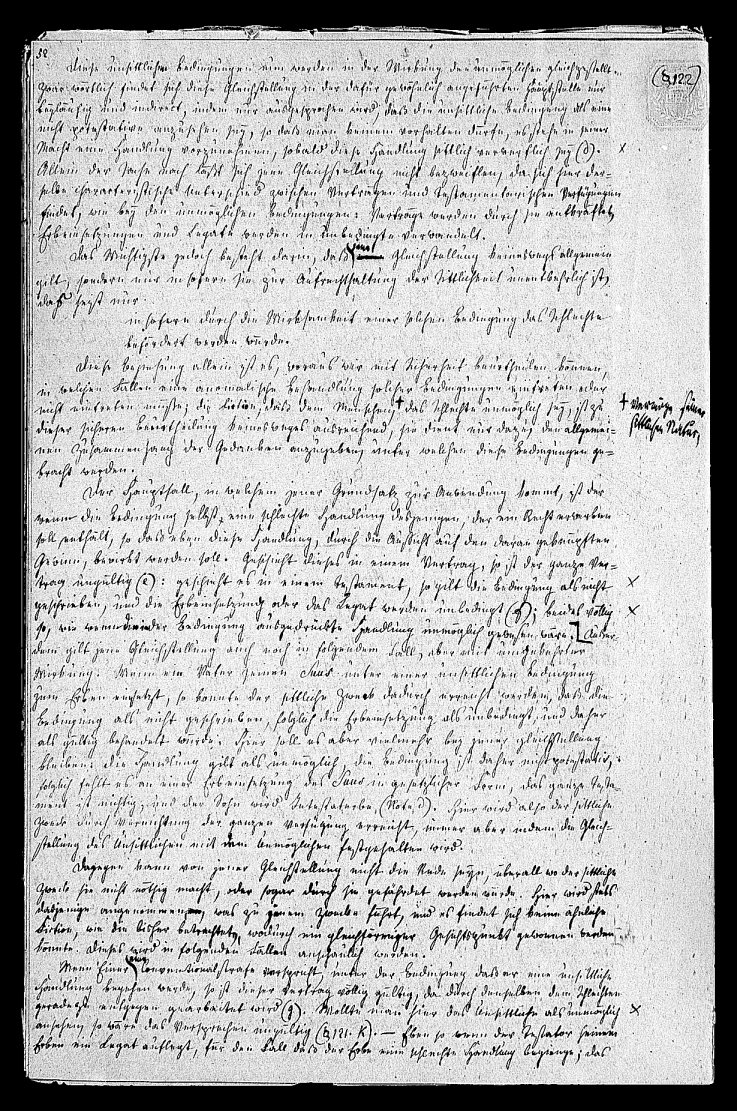 52
(§122)
Diese unsittlichen Bedingungen nun werden in der Wirkung den unmöglichen gleichgestellt.
Zwar wörtlich findet sich diese Gleichstellung in der dafür gewöhnlich angeführten Hauptstelle nur
beyläufig und indirect, indem nur ausgesprochen wird, daß die unsittliche Bedingung als eine
nicht potestative anzusehen sey, so daß man keinem vorhalten dürfe, es stehe in seiner
Macht eine Handlung vorzunehmen, sobald diese Handlung sittlich verwerflich sey (d). ×
Allein der Sache nach läßt sich jene Gleichstellung nicht bezweifeln, da sich hier der-
selbe characteristische Unterschied zwischen Verträgen und testamentarischen Verfügungen
findet, wie bey den unmöglichen Bedingungen: Verträge werden durch sie entkräftet,
Erbeinsetzungen und Legate werden in unbedingte verwandelt.
Das Wichtigste jedoch besteht darin, daß jene Gleichstellung keinesweges allgemein
gilt, sondern nur insofern sie zur Aufrechthaltung der Sittlichkeit unentbehrlich ist,
das heißt nur:
insofern durch die Wirksamkeit einer solchen Bedingung das Schlechte
befördert werden würde.
Diese Beziehung allein ist es, woraus wir mit Sicherheit beurtheilen können,
in welchen Fällen eine anomalische Behandlung solcher Bedingungen eintreten oder
nicht eintreten müsse; die Fiction, daß dem Menschen † das Schlechte unmöglich sey, ist zu
† vermöge seiner
sittlichen Natur,
dieser sicheren Beurtheilung keinesweges ausreichend, sie dient nur dazu, den allgemei-
nen Zusammenhang der Gedanken anzugeben, unter welchen diese Bedingungen ge-
bracht werden.
Der Hauptfall, in welchem jener Grundsatz zur Anwendung kommt, ist der
wenn die Bedingung selbst eine schlechte Handlung desjenigen, der ein Recht erwerben
soll enthält, so daß eben diese Handlung, durch die Aussicht auf den daran geknüpften
Gewinn, bewirkt werden soll. Geschieht dieses in einem Vertrag, so ist der ganze Ver-
trag ungültig (e): geschieht es in einem Testament, so gilt die Bedingung als nicht ×
geschrieben, und die Erbeinsetzung oder das Legat werden unbedingt (f); beides völlig ×
so, wie wenn die in der Bedingung ausgedrückte Handlung unmöglich gewesen wäre. Außer
dem gilt jene Gleichstellung auch noch in folgendem Fall, aber mit umgekehrter
Wirkung. Wenn ein Vater seinen Suus unter einer unsittlichen Bedingung
zum Erben einsetzt, so konnte der sittliche Zweck dadurch erreicht werden, daß die
Bedingung als nicht geschrieben, folglich die Erbeinsetzung als unbedingt, und daher
als gültig behandelt würde. Hier soll es aber vielmehr bey jener Gleichstellung
bleiben: die Handlung gilt als unmöglich, die Bedingung ist daher nicht potestativ,
folglich fehlt es an einer Erbeinsetzung des Suus in gesetzlicher Form, das ganze Testa-
ment ist nichtig, und der Sohn wird Intestaterbe (Note d). Hier wird also der sittliche
Zweck durch Vernichtung der ganzen Verfügung erreicht, immer aber indem die Gleich-
stellung des Unsittlichen mit dem Unmöglichen festgehalten wird.
Dagegen kann von jener Gleichstellung nicht die Rede seyn, überall wo der sittliche
Zweck sie nicht nöthig macht, oder sogar durch sie gefährdet werden würde. Hier wird stets
dasjenige angenommen, was zu jenem Zwecke führt, und es findet sich keine ähnliche
Fiction, wie die bisher betrachtete, wodurch ein gleichförmiger Gesichtspunkt gewonnen werden
könnte. Dieses wird in folgenden Fällen anschaulich werden.
Wenn Einer eine Conventionalstrafe verspricht, unter der Bedingung daß er eine unsittliche
Handlung begehen werde, so ist dieser Vertrag völlig gültig, da durch denselben dem Schlechten
geradezu entgegen gearbeitet wird (g). Wollte man hier das Unsittliche als unmöglich ×
ansehen, so wäre das Versprechen ungültig (§ 121. k). — Eben so wenn der Testator seinem
Erben ein Legat auflegt, für den Fall daß der Erbe eine schlechte Handlung begienge; das